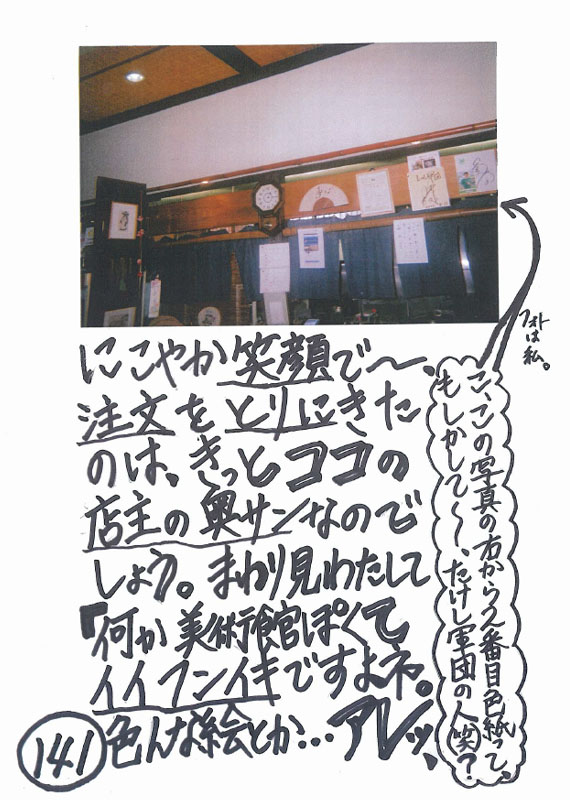 にこやか笑顔で〜、
注文をとりにきた
のは、きっとココの
店主の奥サンなので
しょう。まわり見わたして
『何か美術館ぽくて
イイフンイキですよネ。
色んな絵とか…アレッ、
141
フォトは私。
こ、この写真の右から2番目色紙って、
もしかして〜、たけし軍団の人(笑)?